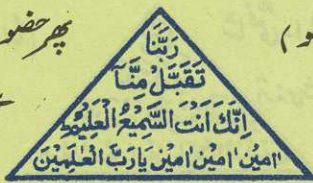 پھر حضور
رَبَّنَا
تَقَبَّلْ مِنَّآ
اِنَّكَ اَنْتَ السَّمِيْعُ الْعَلِيْمُ
اٰمِيْن اٰمِيْن اٰمِيْن يَارَبَّ الْعٰلَمِيْنَ